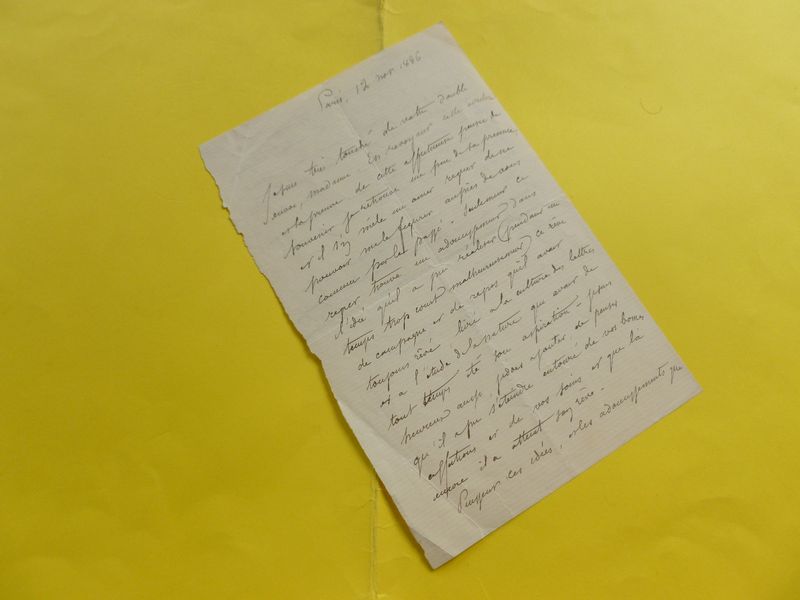 Paris, 12 nov. 1886
Je suis très touché de votre double
envoi, madame. En revoyant cette
et la preuve de cette affectueuse pensée de
souvenir je retrouve un peu de la présence
et il s'y mêle un amer regret de ne
pouvoir me le figurer auprès de vous
comme par le passé. Seulement ce
regret trouve un adoucissement dans
l'idée qu'il a pu réaliser (pendant un
temps trop court malheureusement) ce rêve
de campagne et de repos qu'il avait
toujours rêvé lié à la culture des lettres
et à l'étude de la nature qui avait de
tout temps été son aspiration - je suis
heureux aussi, je dois ajouter, de penser
qu'il a pu s'éteindre entouré de vos bonnes
affections et de vos soins et que là
encore il a atteint son rêve.
Puissent ces idées, et les adoucissements que